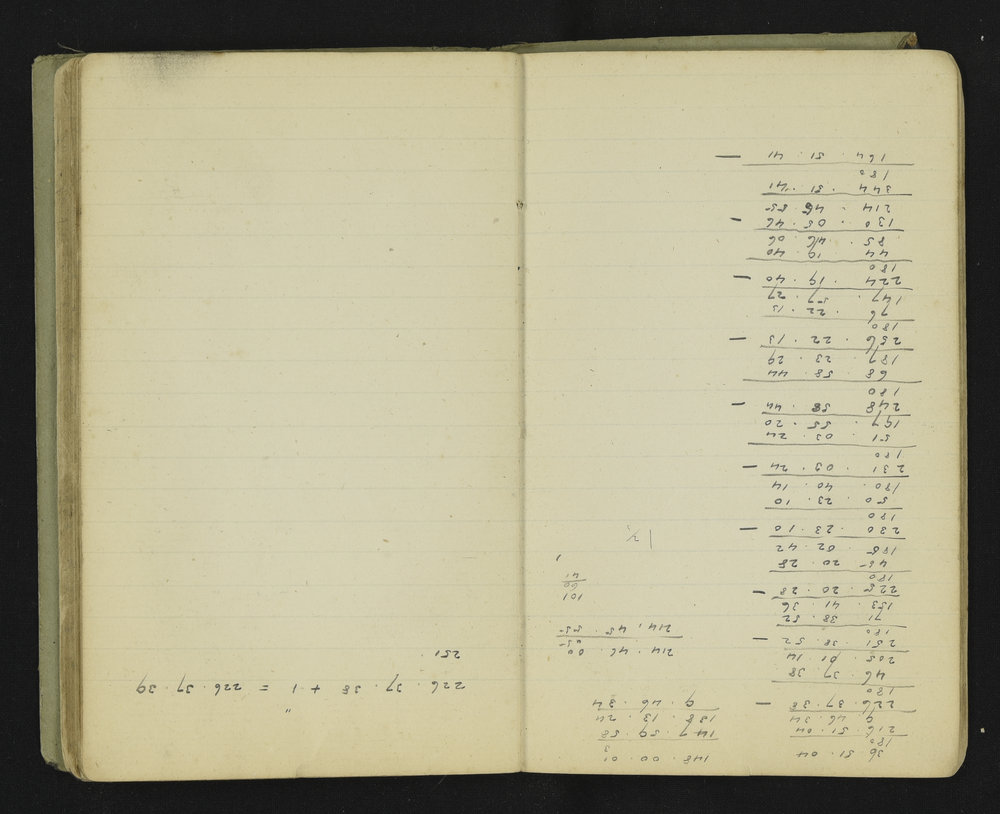 36 . 51 . 04
180
216 . 51 . 04
9 . 46 . 34
226 . 37 . 38 —
180
46 . 37 . 38
205 . 01 . 14
251 . 38 . 52 —
180
71 38 . 52
153 . 41 . 36
225 . 20 . 28 —
180
45 20 . 28
185 . 02 . 42
230 . 23 . 10 —
180
50 . 23 . 10
180 . 40 . 14
231 . 03 . 24 —
180
51 . 03 . 24
197 . 55 . 20
248 58 . 44 —
180
68 . 58 . 44
187 . 23 . 29
256 . 22 . 13 —
180
76 . 22 . 13
147 . 57 . 27
224 . 19 . 40 —
180
44 19 . 40
85 . 46 . 06
130 . 05 . 46 —
214 . 45 55
344 . 51 . 41
180
164 . 51 . 41 —
148 . 00 . 01
3
147 . 59 . 58
138 . 13 . 24
9 . 46 . 34
214 . 46 . 00
05
214 . 45 . 55
101
60
41
226 . 37 . 38 + 1" = 226 . 37 . 39
251